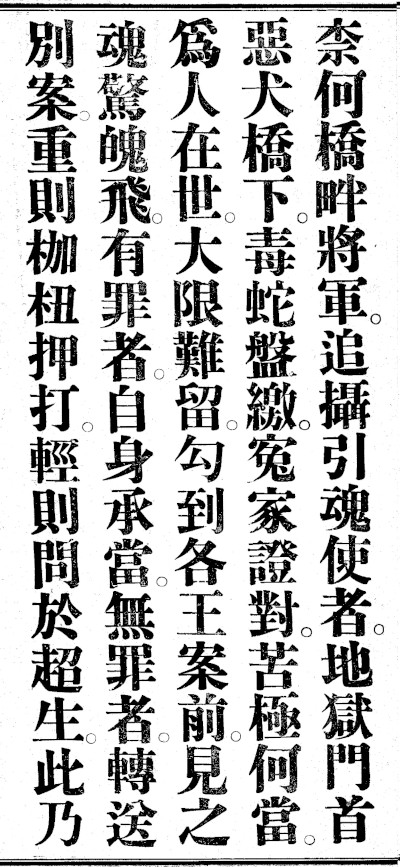 柰何橋畔將軍。追攝引魂使者。地獄門首
惡犬橋下。毒蛇盤繳。寃家證對。苦極何當。
爲人在世。大限難留。勾到各王案前。見之
魂驚魄飛。有罪者。自身承當。無罪者。轉送
別案。重則枷杻押打。輕則問於超生。此乃